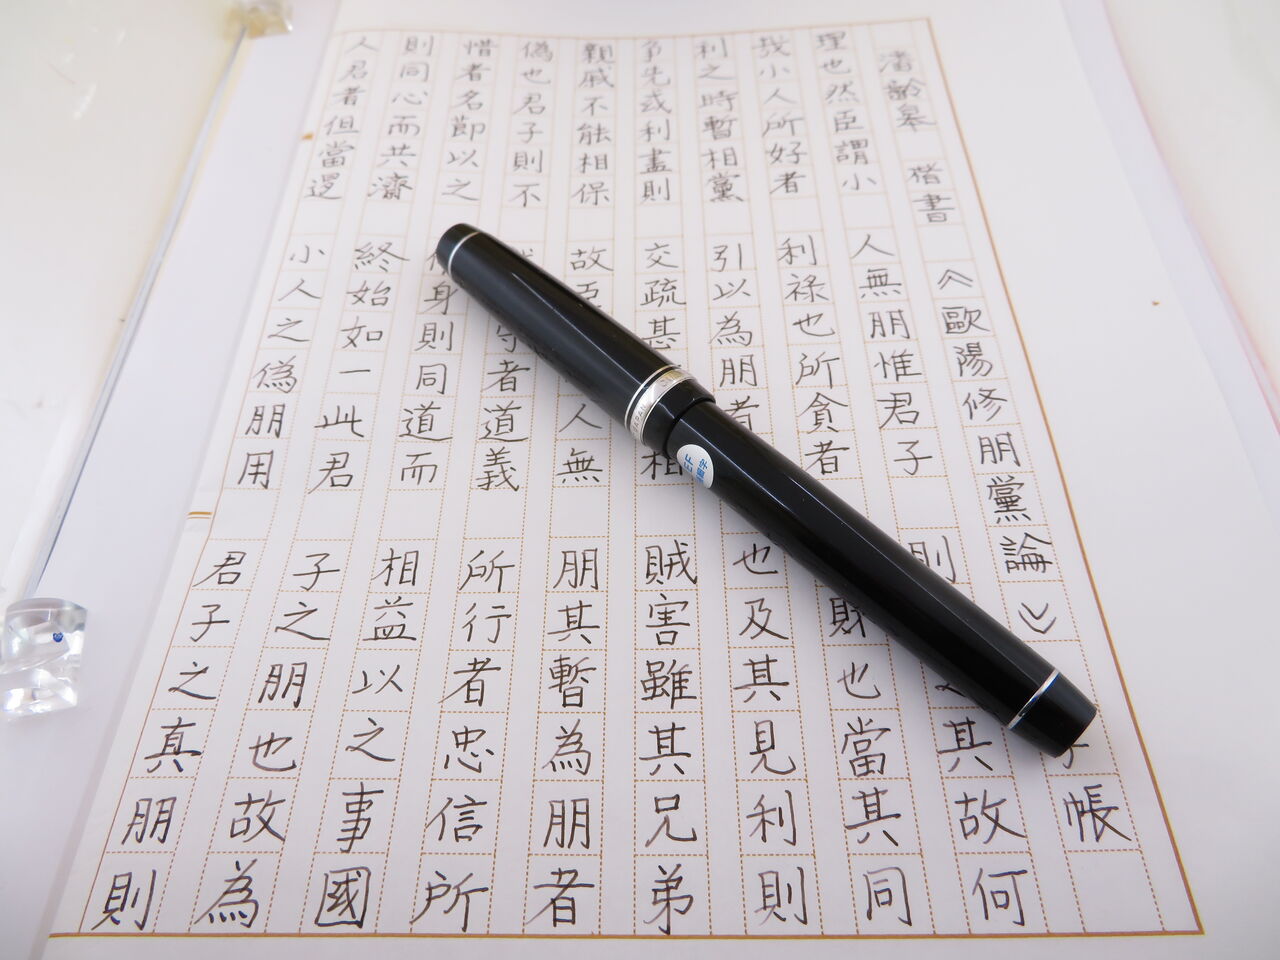 潘齡皋 楷書 《歐陽修朋黨論》 字帳
理也然臣謂小人無朋惟君子則之其故何
哉小人所好者利祿也所貪者財也當其同
利之時暫相黨引以為朋者也及其見利則
爭先或利盡則交疏甚相賊害雖其兄弟
親戚不能相保故臣人無朋其暫為朋者
偽也君子則不守者道義所行者忠信所
惜者名節以之身則同道而相益以之事國
則同心而共濟終始如一此君子之朋也故為
人君者但當退小人之偽朋用君子之真朋則
JAPAN
EF